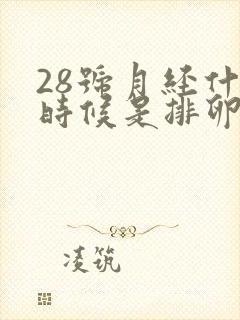 28號月经什
時候是排卵
凌筑